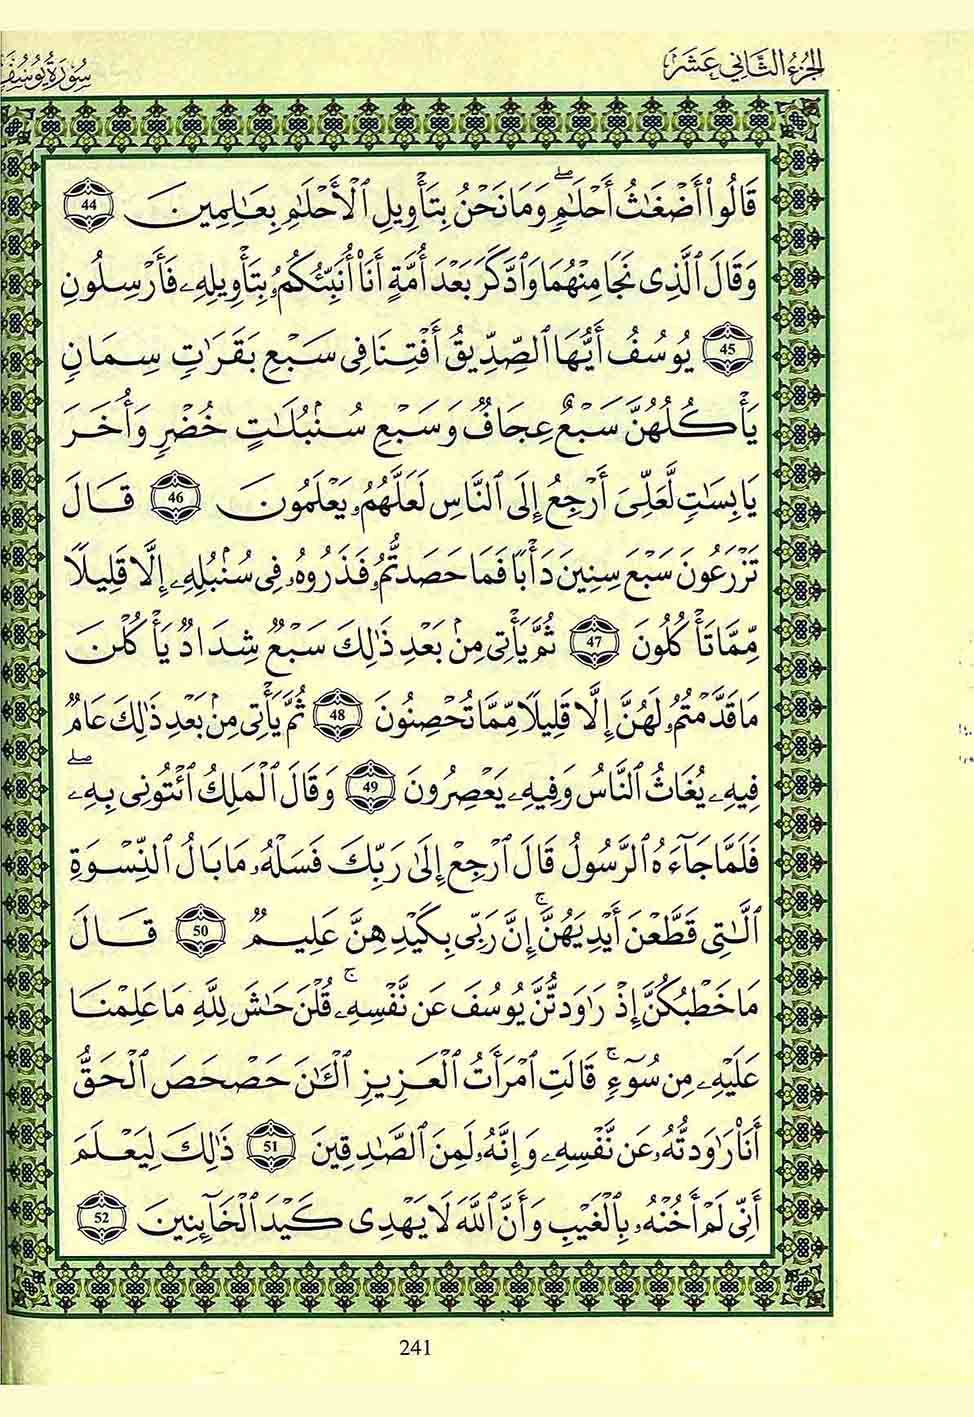 الجزء الثاني عشر
سورة يوسف
قَالُوٓا۟ أَضْغَـٰثُ أَحْلَـٰمٍۢ ۖ وَمَا نَحْنُ بِتَأْوِيلِ ٱلْأَحْلَـٰمِ بِعَـٰلِمِينَ 44
وَقَالَ ٱلَّذِى نَجَا مِنْهُمَا وَٱدَّكَرَ بَعْدَ أُمَّةٍ أَنَا۠ أُنَبِّئُكُم بِتَأْوِيلِهِۦ فَأَرْسِلُونِ
45 يُوسُفُ أَيُّهَا ٱلصِّدِّيقُ أَفْتِنَا فِى سَبْعِ بَقَرَٰتٍ سِمَانٍ
يَأْكُلُهُنَّ سَبْعٌ عِجَافٌ وَسَبْعِ سُنۢبُلَـٰتٍ خُضْرٍ وَأُخَرَ
يَابِسَـٰتٍ لَّعَلِّىَ أَرْجِعُ إِلَى ٱلنَّاسِ لَعَلَّهُمُۥ يَعْلَمُونَ 46 قَالَ
تَزْرَعُونَ سَبْعَ سِنِينَ دَأْبًا فَمَا حَصَدتُّمُۥ فَذَرُوهُۥ فِى سُنۢبُلِهِۦ إِلَّا قَلِيلًا
مِّمَّا تَأْكُلُونَ 47 ثُمَّ يَأْتِى مِنۢ بَعْدِ ذَٰلِكَ سَبْعٌ شِدَادٌ يَأْكُلْنَ
مَا قَدَّمْتُمُۥ لَهُنَّ إِلَّا قَلِيلًا مِّمَّا تُحْصِنُونَ 48 ثُمَّ يَأْتِى مِنۢ بَعْدِ ذَٰلِكَ عَامٌ
فِيهِۦ يُغَاثُ ٱلنَّاسُ وَفِيهِۦ يَعْصِرُونَ 49 وَقَالَ ٱلْمَلِكُ ٱئْتُونِى بِهِۦ ۖ
فَلَمَّا جَآءَهُ ٱلرَّسُولُ قَالَ ٱرْجِعْ إِلَىٰ رَبِّكَ فَسَلْهُۥ مَا بَالُ ٱلنِّسْوَةِ
ٱلَّـٰتِى قَطَّعْنَ أَيْدِيَهُنَّ ۚ إِنَّ رَبِّى بِكَيْدِهِنَّ عَلِيمٌ 50 قَالَ
مَا خَطْبُكُنَّ إِذْ رَٰوَدتُّنَّ يُوسُفَ عَن نَّفْسِهِۦ ۚ قُلْنَ حَـٰشَ لِلَّهِ مَا عَلِمْنَا
عَلَيْهِۦ مِن سُوٓءٍ ۚ قَالَتِ ٱمْرَأَتُ ٱلْعَزِيزِ ٱلْـَٔـٰنَ حَصْحَصَ ٱلْحَقُّ
أَنَا۠ رَٰوَدتُّهُۥ عَن نَّفْسِهِۦ وَإِنَّهُۥ لَمِنَ ٱلصَّـٰدِقِينَ 51 ذَٰلِكَ لِيَعْلَمَ
أَنِّى لَمْ أَخُنْهُۥ بِٱلْغَيْبِ وَأَنَّ ٱللَّهَ لَا يَهْدِى كَيْدَ ٱلْخَآئِنِينَ 52
241